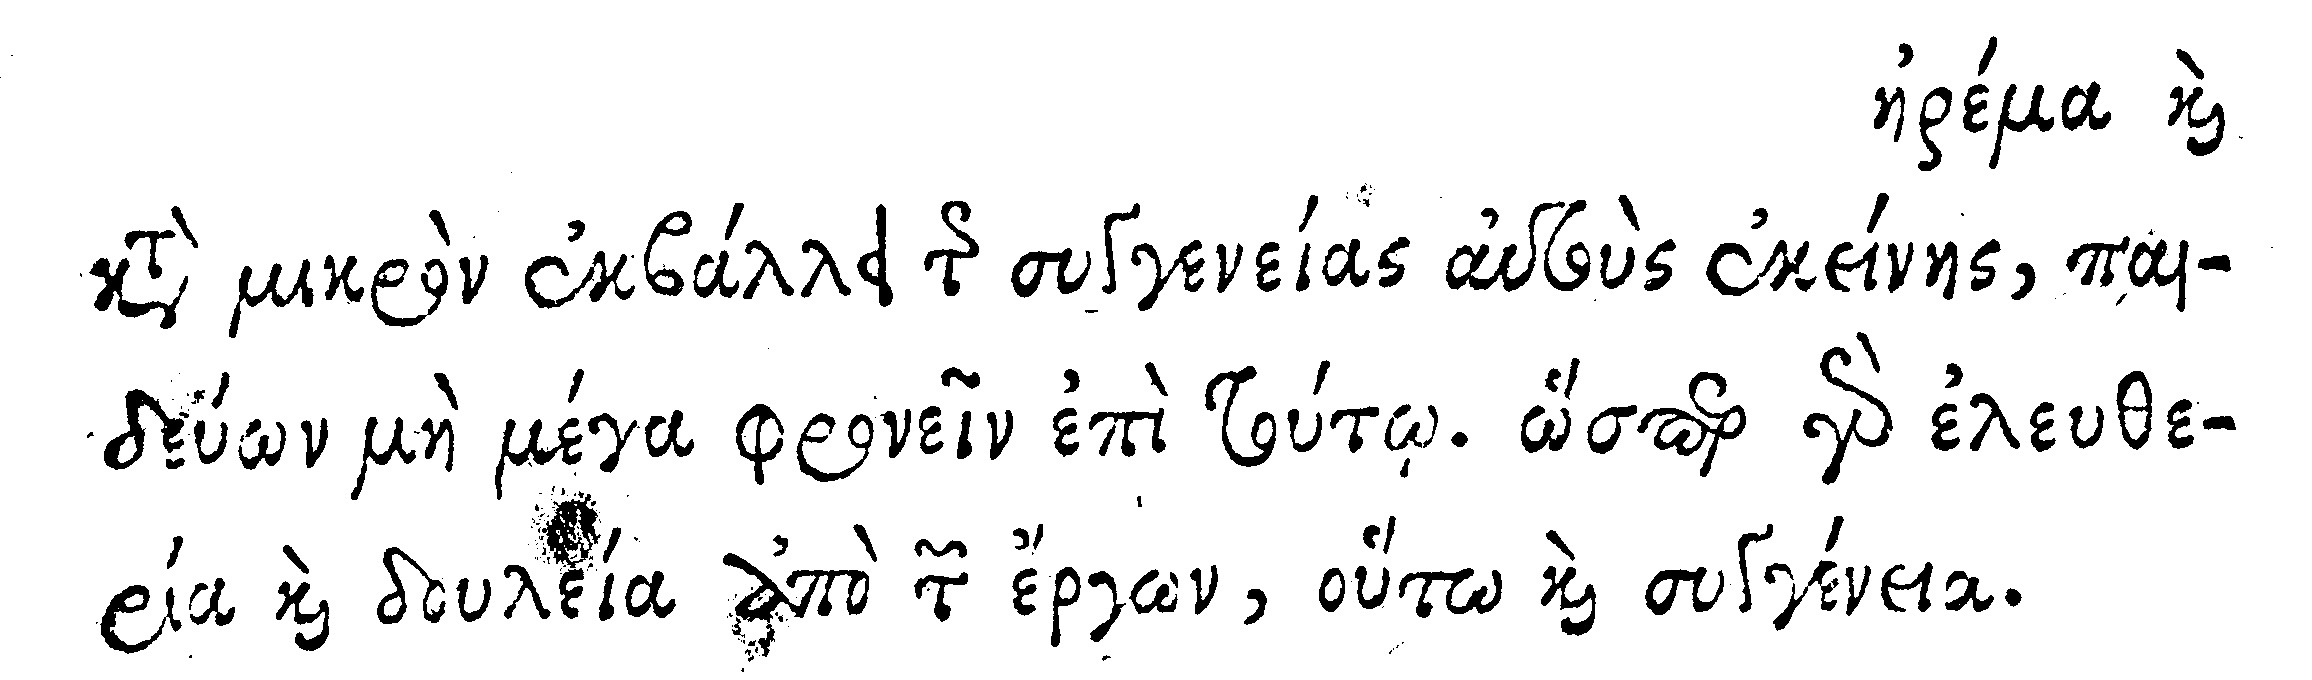 ἠρέμα καὶ
κατὰ μικρὸν ἐκβάλλει τῆς συγγενείας αὐτοὺς ἐκείνης, παι-
δεύων μὴ μέγα φρονεῖν ἐπὶ τούτῳ. ὥσπερ γὰρ ἐλευθε-
ρία καὶ δουλεία ἀπὸ τῶν ἔργων, οὕτω καὶ συγγένεια.